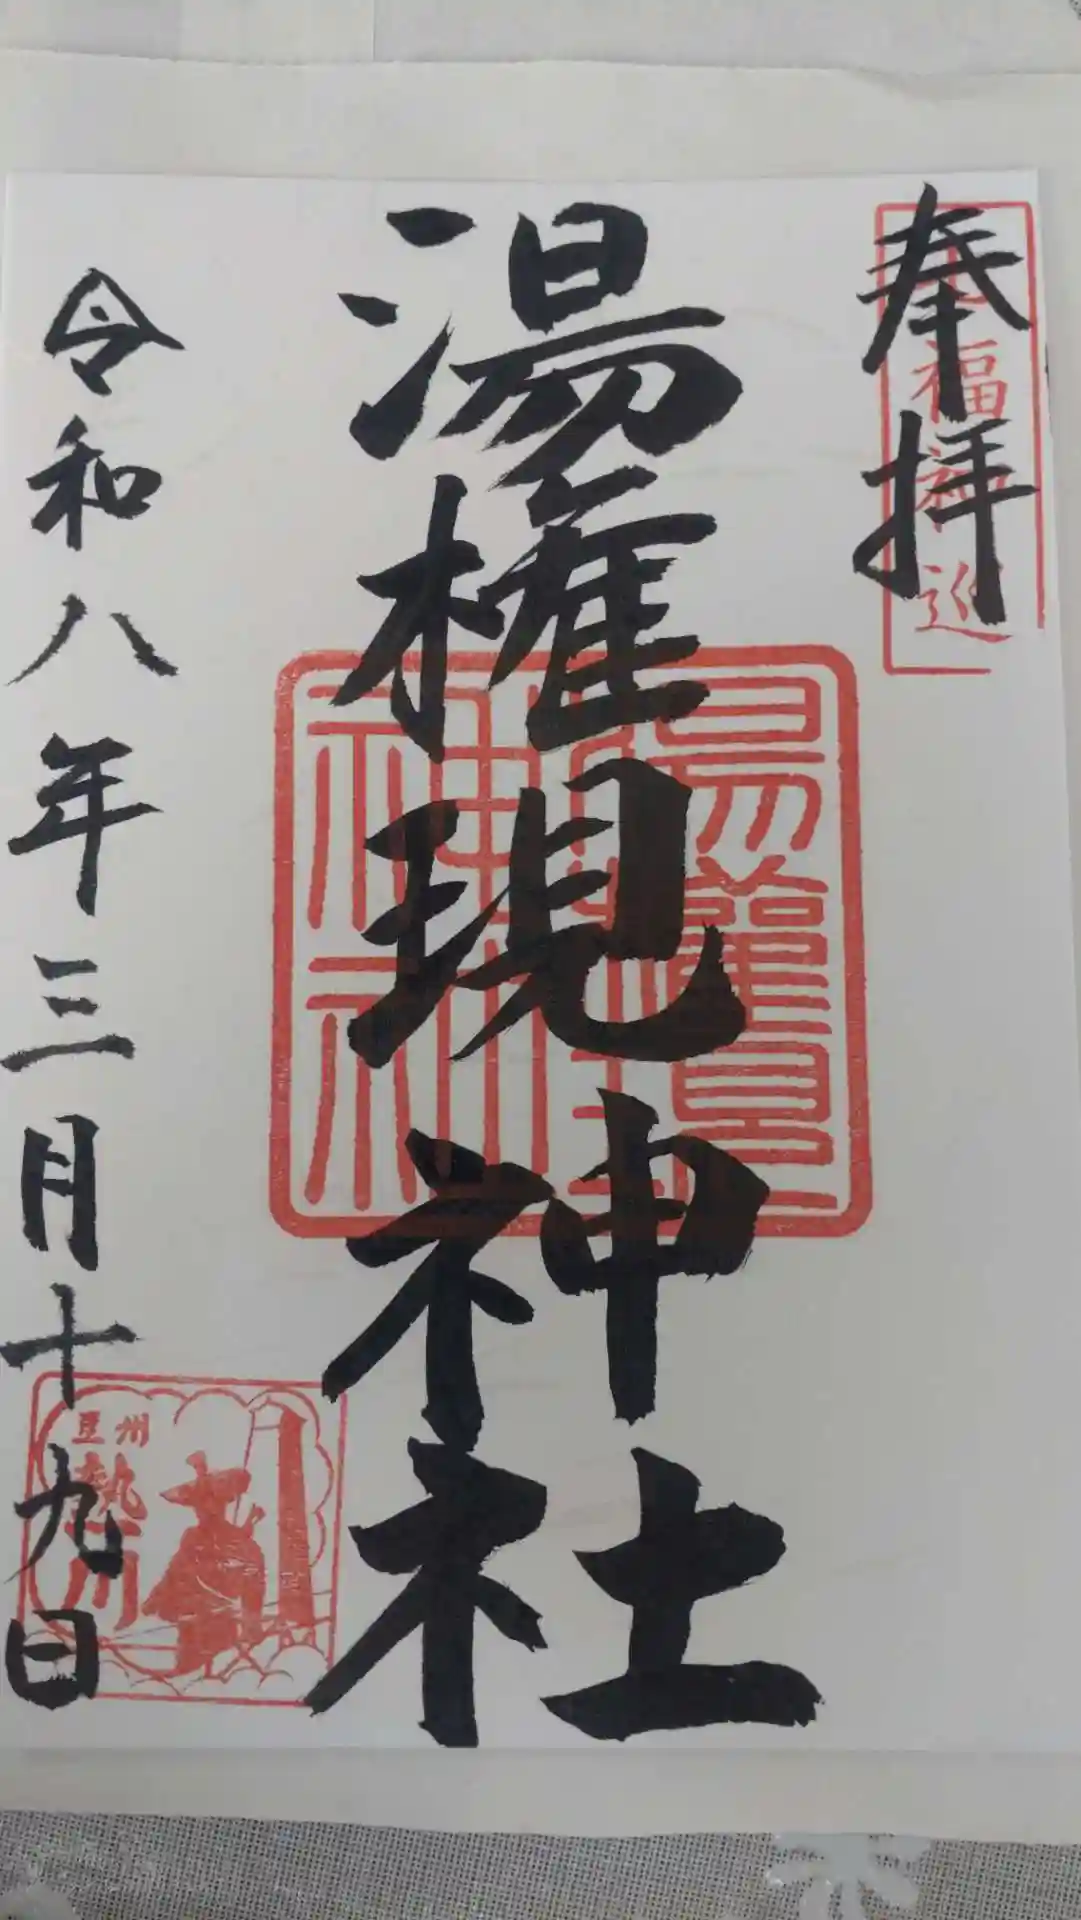 奉拝
福神巡
湯権現神社
湯権現神社
令和八年三月十九日
豆州
熱川